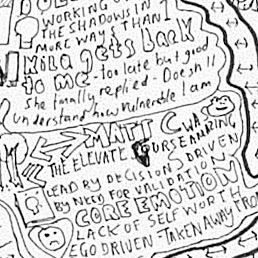 WORKING ON
THE SHADOWS IN
MORE WAYS THAN 1
Nila gets back
to me - too late but good
she finally replied - Doesn't
understand how vulnerable I am
MATT
WAS
THE ELEVATE COURSE
LEAD BY DECISIONS DRIVEN
BY NEED FOR VALIDATION
CORE EMOTION
LACK OF SELF WORTH
EGO DRIVEN - TAKEN AWAY FROM